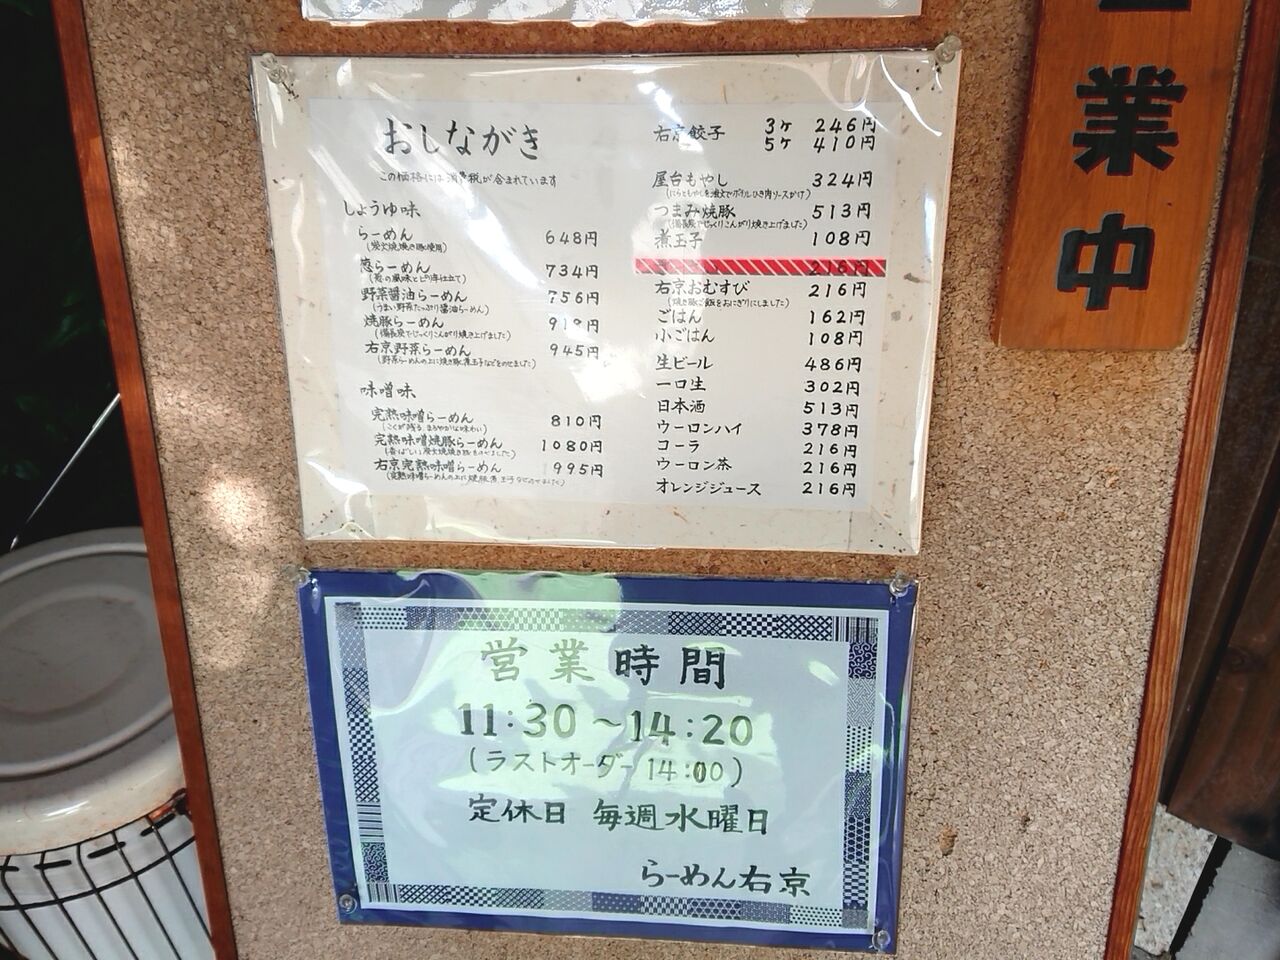 業中
おしながき
この価格には消費税が含まれています
しょうゆ味
らーめん 648円
(炭火焼焼き豚使用)
葱らーめん 734円
(葱の風味とピリ辛仕立て)
野菜醤油らーめん 756円
(うまい野菜たっぷり醤油らーめん)
焼豚らーめん 918円
(備長炭でじっくりこんがり焼き上げました)
右京野菜らーめん 945円
(野菜らーめんの上に焼き豚、煮玉子などをのせました)
味噌味
完熟味噌らーめん 810円
(こくが残る、まろやかな味わい)
完熟味噌焼豚らーめん 1080円
(香ばしい炭火焼焼き豚をのせました)
右京完熟味噌らーめん 995円
(完熟味噌らーめんの上に焼豚、煮玉子などのせました)
右京餃子 3ヶ 246円
5ヶ 410円
屋台もやし 324円
(にらともやしを注文でボイル、ひき肉ソースかけ)
つまみ焼豚 513円
(備長炭でじっくりこんがり焼き上げました)
煮玉子 108円
216円
右京おむすび 216円
(焼き豚ご飯をおにぎりにしました)
ごはん 162円
小ごはん 108円
生ビール 486円
一口生 302円
日本酒 513円
ウーロンハイ 378円
コーラ 216円
ウーロン茶 216円
オレンジジュース 216円
営業時間
11:30～14:20
(ラストオーダー 14:00)
定休日 毎週水曜日
らーめん右京